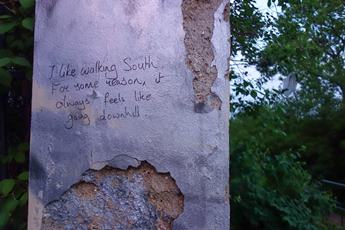 I like walking South.
For some reason, it
always feels like
going downhill.